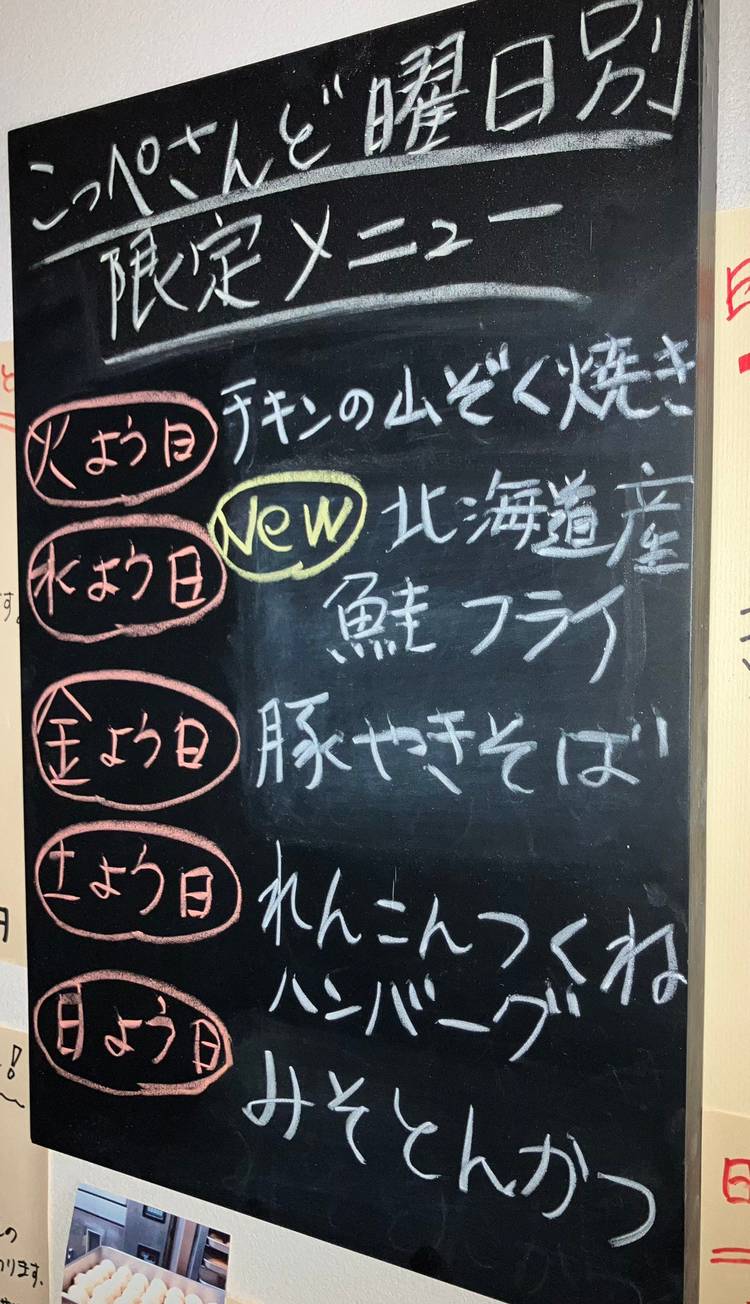 こっぺさんど曜日別
限定メニュー
火よう日 チキンの山ぞく焼き
水よう日 New 北海道産
鮭フライ
金よう日 豚やきそば
土よう日 れんこんつくね
ハンバーグ
日よう日 みそとんかつ